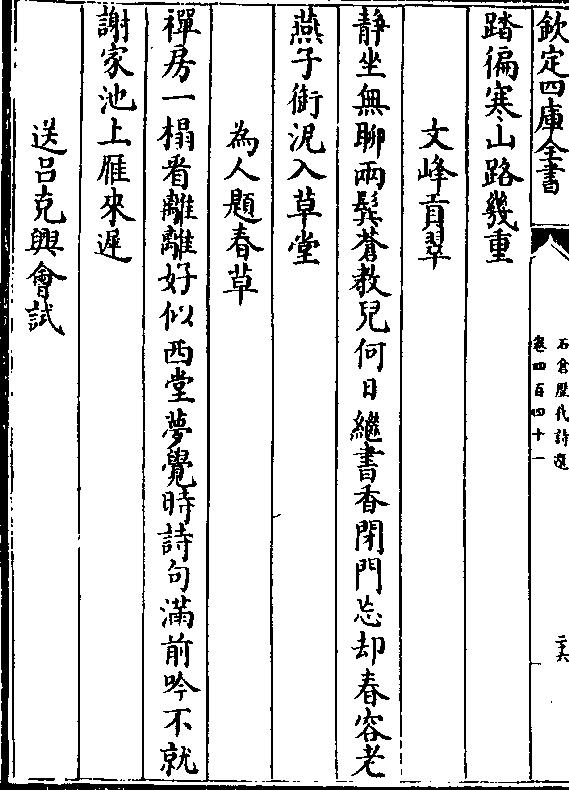 欽定四庫全書
石倉歷代詩選
卷四百四十一
二十六
踏徧寒山路幾重
文峰貢翠
靜坐無聊兩鬢蒼教兒何日繼書香閉門忘却春容老
燕子銜泥入草堂
為人題春草
禪房一榻看離離好似西堂夢覺時詩句滿前吟不就
謝家池上雁來遲
送呂克興會試